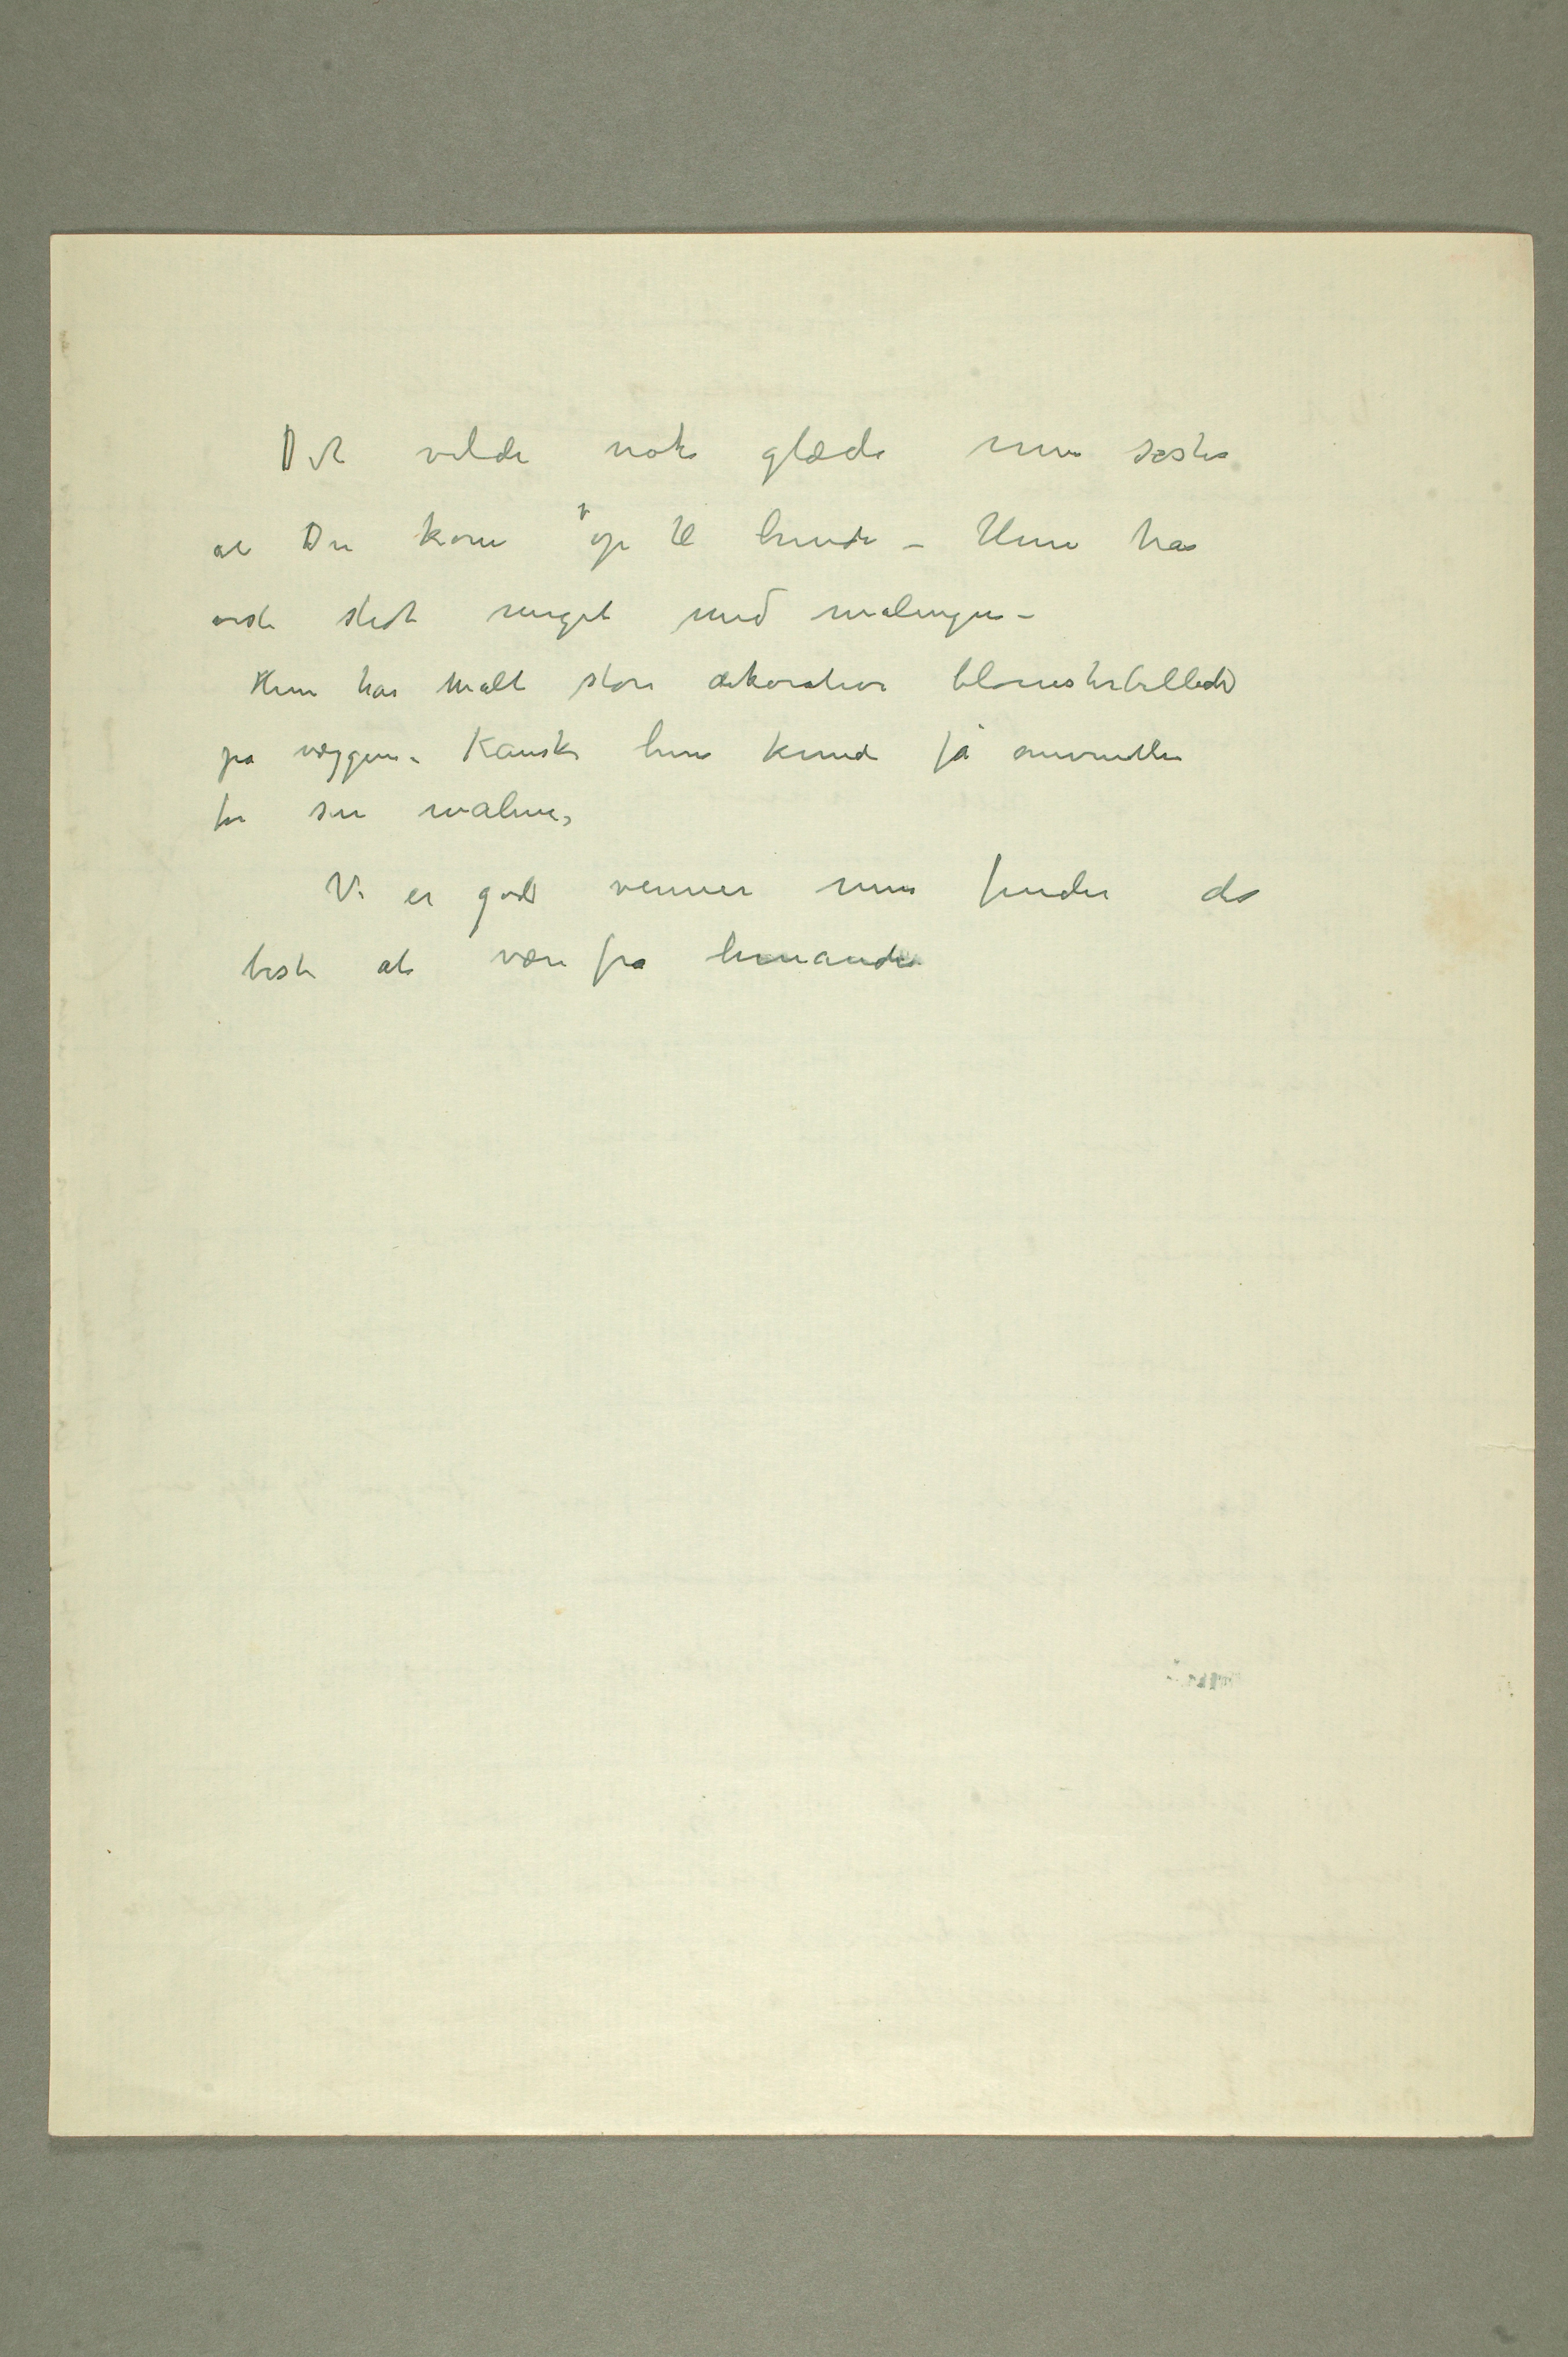 Det vilde nok glæde min søster
at Du kom op til hende – Hun har
visst slidt meget med malingen –
Hun har malt store dekorative blomsterbilleder
på væggene. Kanske hun kunde få anvendelse
for sin maling
Vi er gode venner men finder det
best at være fra hinanden